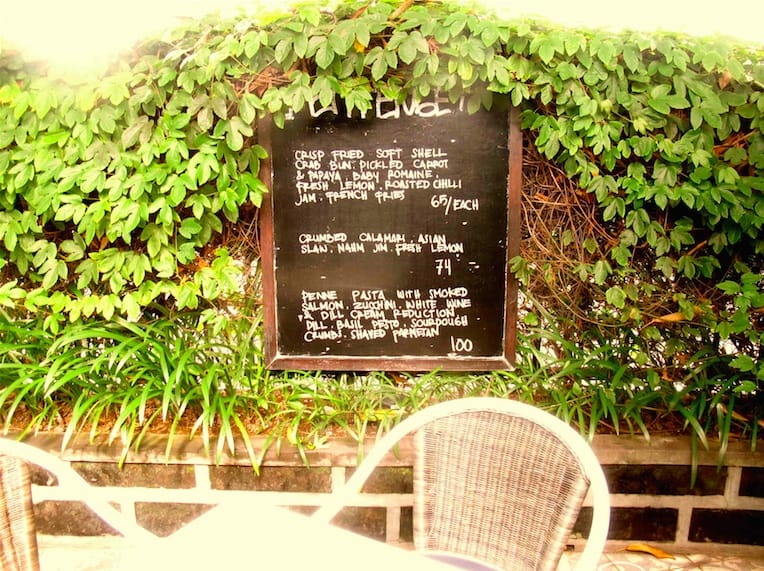 CRISP FRIED SOFT SHELL
CRAB BUN. PICKLED CARROT
& PAPAYA. BABY ROMAINE.
FRESH LEMON. ROASTED CHILLI
JAM. FRENCH FRIES
65/EACH
CRUMBED CALAMARI. ASIAN
SLAW. NAHM JIM. FRESH LEMON
74
PENNE PASTA WITH SMOKED
SALMON. ZUCCHINI. WHITE WINE
& DILL CREAM REDUCTION.
DILL. BASIL PESTO. SOURDOUGH
CRUMBS. SHAVED PARMETAN
100